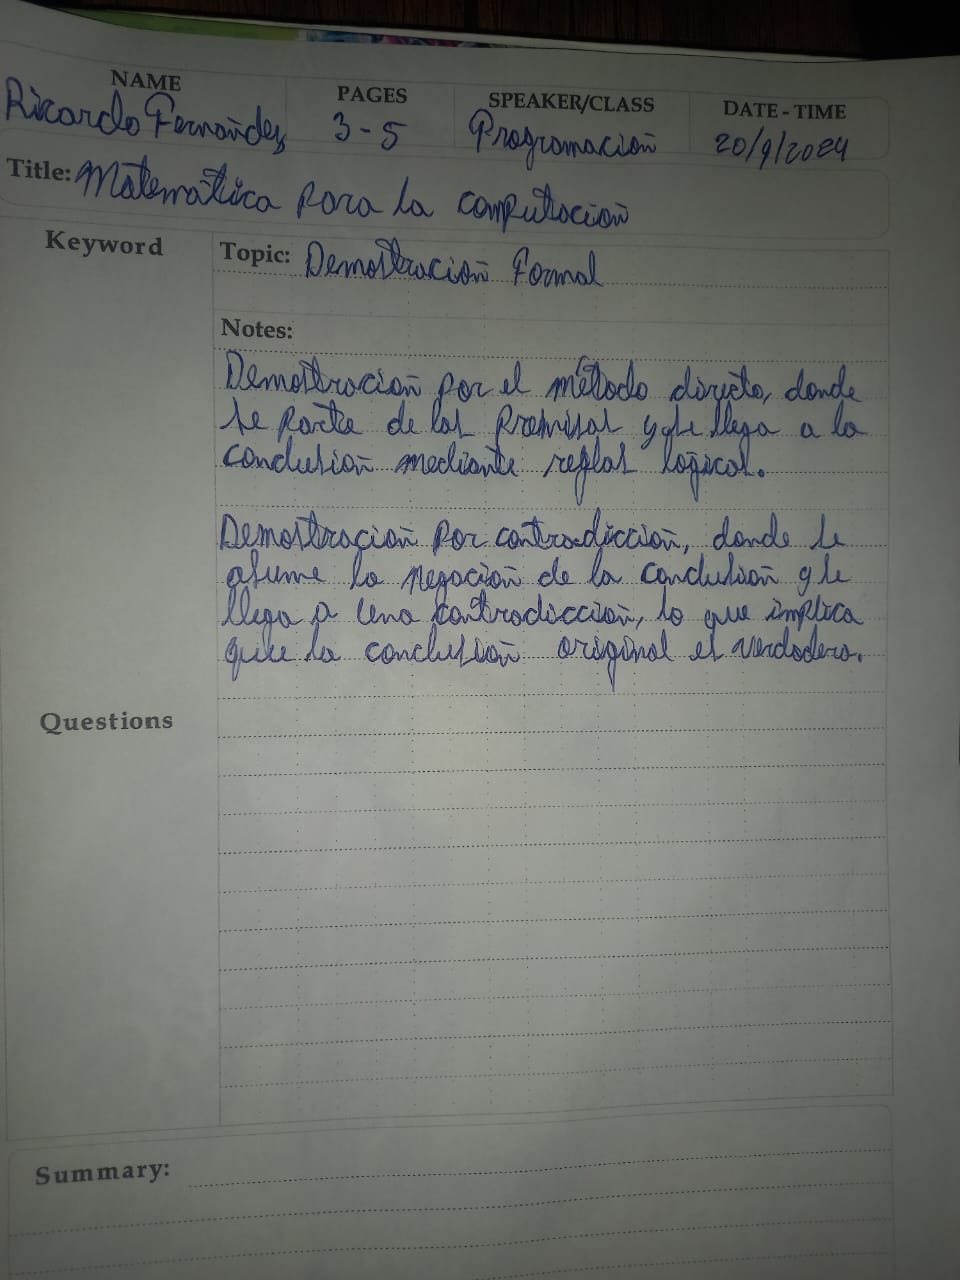 NAME PAGES SPEAKER/CLASS DATE - TIME
Ricardo Fernández 3-5 Programación 20/9/2024
Title: Matemática para la computación
Keyword
Topic: Demostración Formal
Notes:
Demostración por el método directo, donde
se parte de las Premisas y se llega a la
conclusión mediante reglas lógicas.
Demostración por contradicción, donde se
asume la negación de la conclusión y se
llega a una contradicción, lo que implica
que la conclusión original es verdadera.
Questions
Summary: